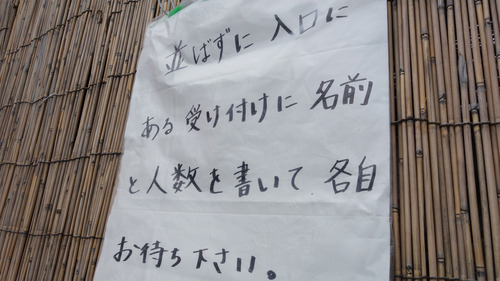 並ばずに 入口に
ある 受け付けに 名前
と人数を書いて 各自
お待ち下さい。